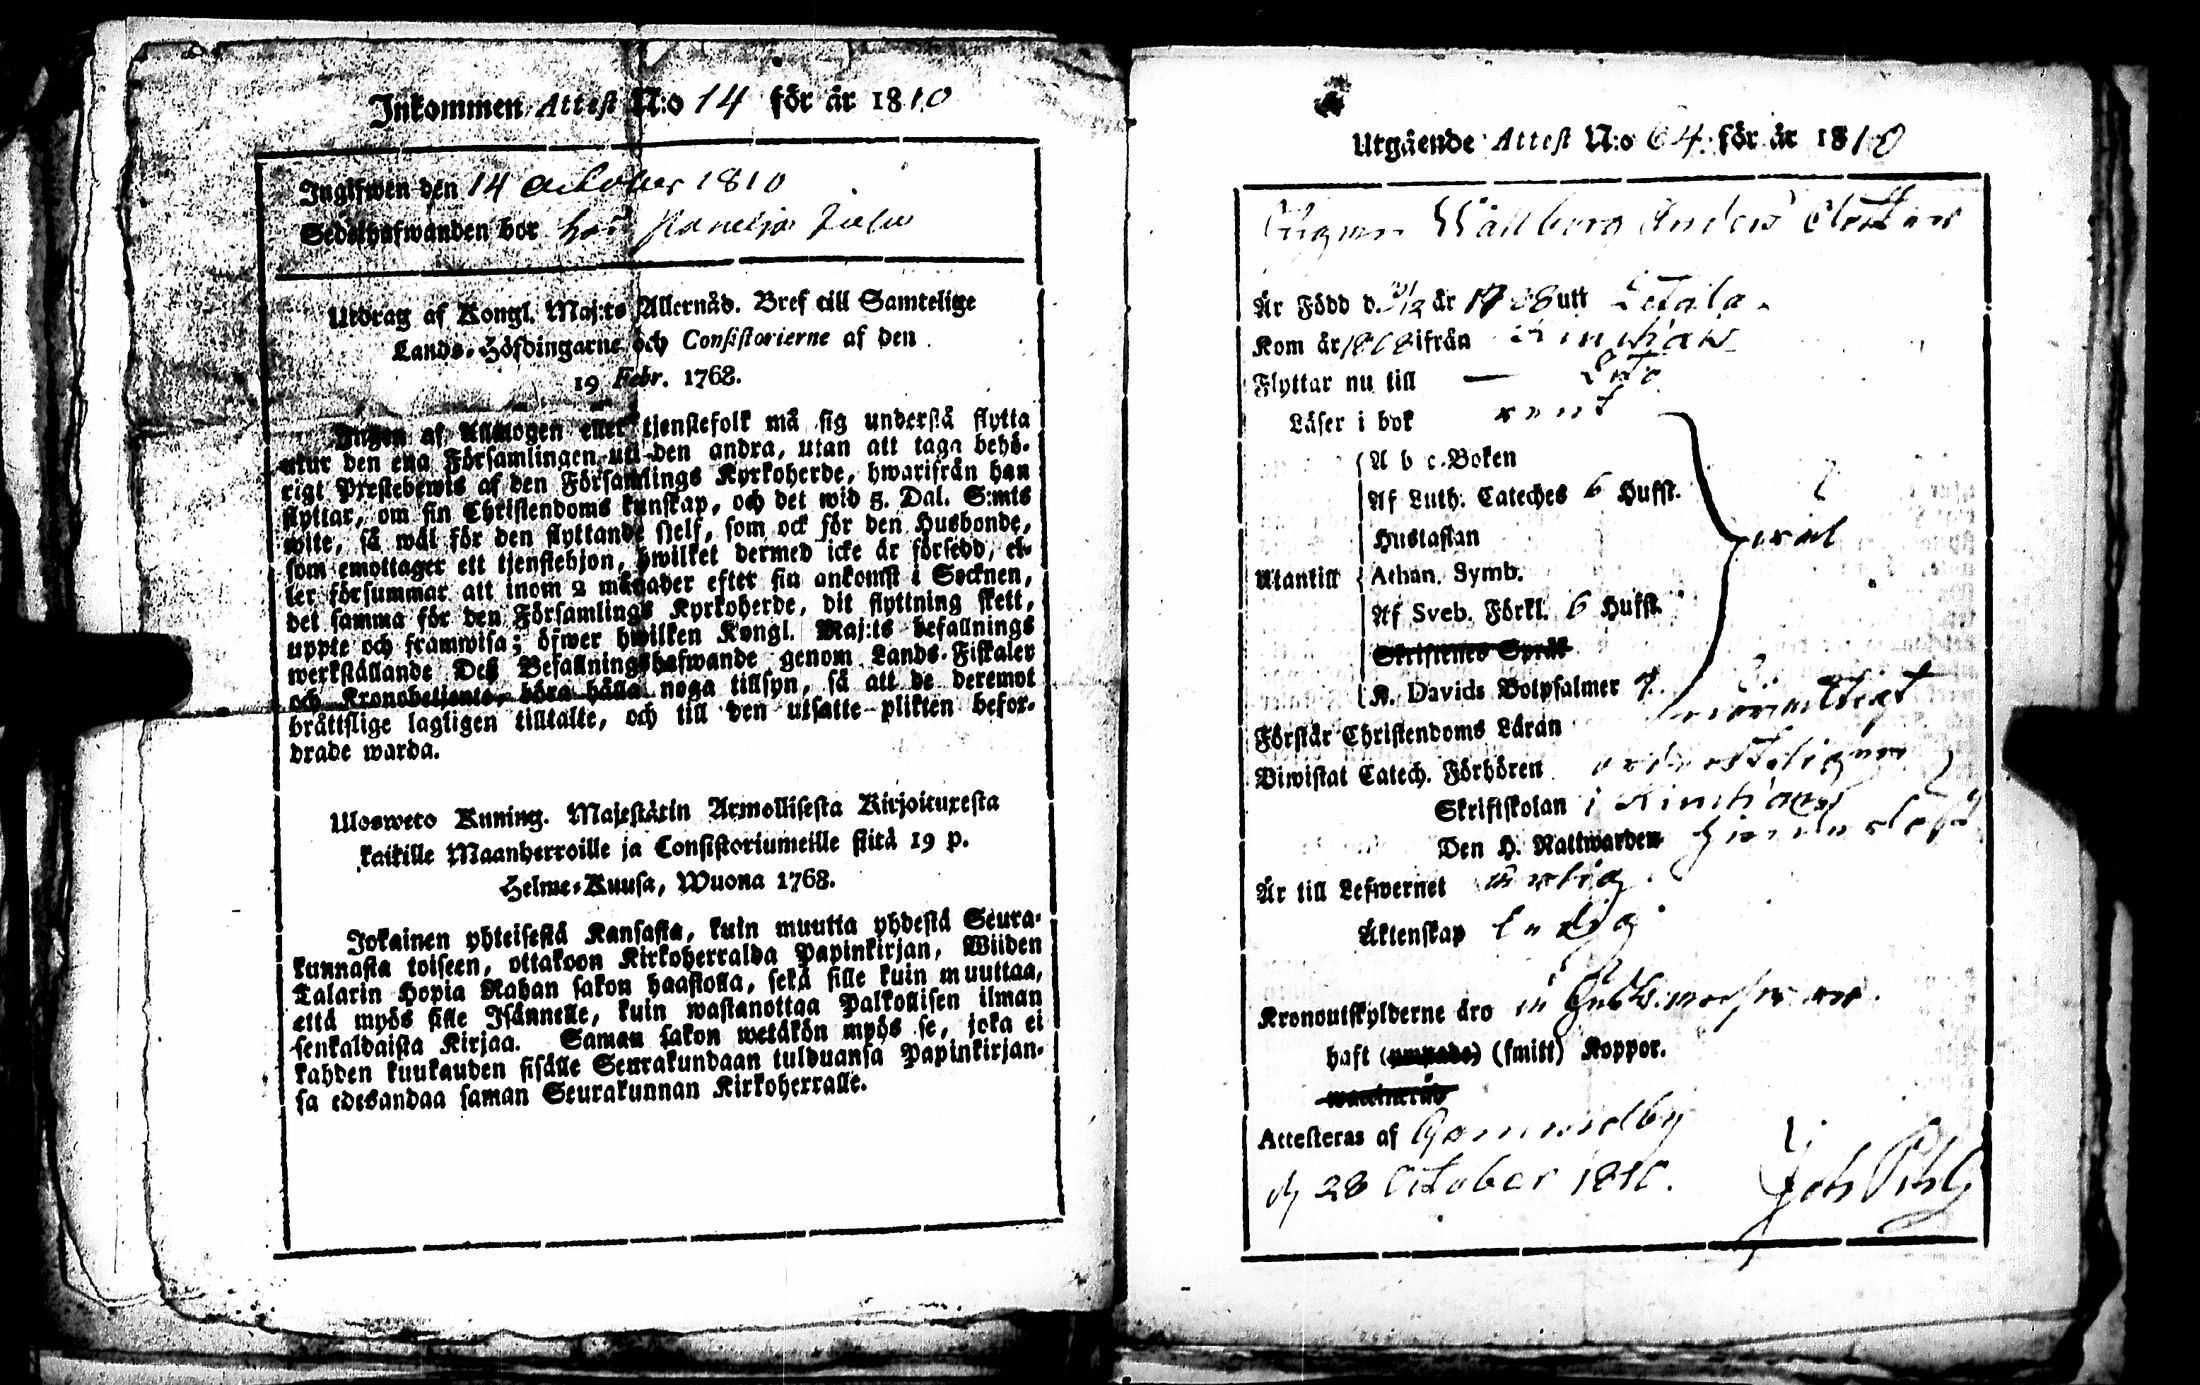 Inkommen Attest N:o 14 för år 1810
Ingifwen den 14 October 1810
Sedelhafwanden bor hos
Utdrag af Kongl. Maj:ts Allernåd. Bref till Samtelige
Lands-Höfdingarne och Consistorierne af den
19 Febr. 1768.
Ingen af Allmogen eller tjenstefolk må sig understå flytta
utur den ena Församlingen uti den andra, utan att taga behö-
rigt Prestebewis af den Församlings Kyrkoherde, hwarifrån han
flyttar, om sin Christendoms kunskap, och det wid 5. Dal. S:mts
wite, så wäl för den flyttande sjelf, som ock för den Husbonde,
som emottager ett tjenstehjon, hwilket dermed icke är försedd, el-
ler försummar att inom 2 månader efter sin ankomst i Socknen,
det samma för den Församlings Kyrkoherde, dit flyttning skett,
uppte och framwisa; öfwer hwilken Kongl. Maj:ts befallnings
werkställande Deß Befallningshafwande genom Lands-Fiskaler
och Kronobetjente, böra hålla noga tillsyn, så att de deremot
bråttslige lagligen tilltalte, och till den utsatte plikten befor-
drade warda.
Ulosweto Kuning. Majestätin Armollisesta Kirjoituxesta
kaikille Maanherroille ja Consistoriumeille siitä 19 p.
Helme-Kuusa, Wuona 1768.
Jokainen yhteisestä Kansasta, kuin muutta yhdestä Seura-
kunnasta toiseen, ottakoon Kirkoherralda Papinkirjan, Wiiden
Talarin Hopia Rahan sakon haastolla, sekä sille kuin muuttaa,
että myös sille Isännelle, kuin wastanottaa Palkollisen ilman
senkaldaista Kirjaa. Saman sakon wetäkön myös se, joka ei
kahden kuukauden sisälle Seurakundaan tulduansa Papinkirjan-
sa edesandaa saman Seurakunnan Kirkoherralle.
Utgående Attest N:o 64 för år 1810
Wallberg Anders
Är Född d. år utt Letala
Kom år 1808 ifrån
Flyttar nu till — Leto
Läser i bok rent
Utantill
A b c-Boken
Af Luth. Cateches 6 Hufst.
Hustaflan
Athan. Symb.
Af Sveb. Förkl. 6 Hufst.
Skriftenes Språk
K. Davids Botpsalmer 7.
wäl
Förstår Christendoms Läran
Biwistat Catech. Förhören
Skriftskolan i
Den H. Nattwarden
Är till Lefwernet ärlig
Äktenskap ledig
Kronoutskylderne äro
haft (ympade) (smitt) Koppor.
waccinerad
Attesteras af Gammelby
d 28 October 1810.
Joh Pihl